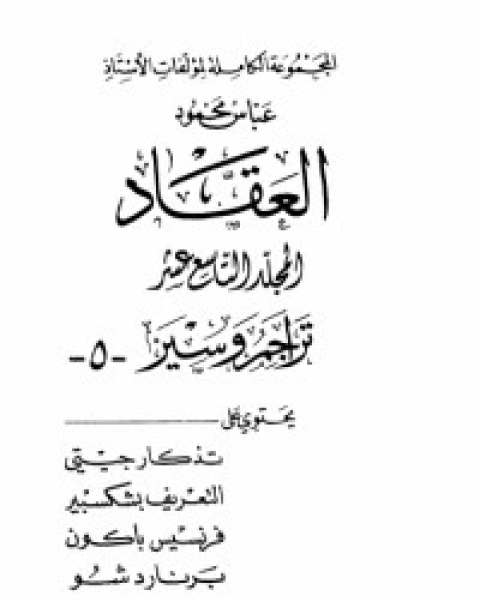 المجموعة الكاملة لمؤلفات الأستاذ
عباس محمود
العقاد
المجلد التاسع عشر
تراجم وسير -٥-
يحتوي على
تذكار جيتي
التعريف بشكسبير
فرنسيس باكون
برنارد شو